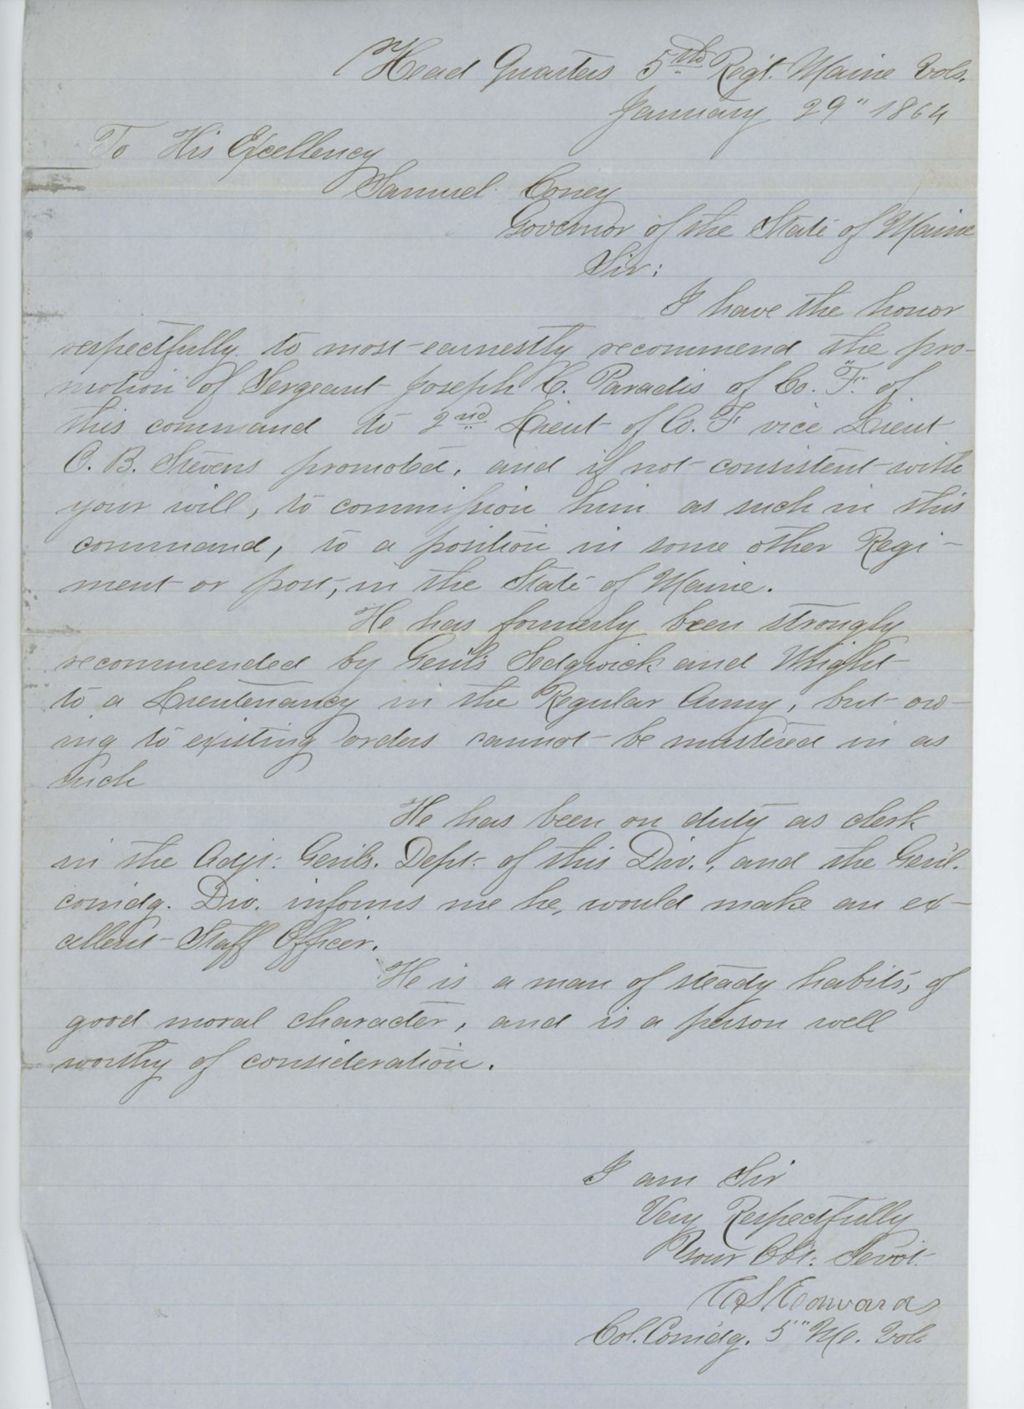 Head Quarters 5th Regt. Maine Vols.
January 29" 1864
To His Excellency
Samuel Coney
Governor of the State of Maine
Sir:
I have the honor
respectfully to most earnestly recommend the pro-
motion of Sergeant Joseph C. Paradis of Co. "F" of
this command to 2nd Lieut of Co. F vice Lieut
O. B. Stevens promoted, and if not consistent with
your will, to commission him as such in this
command, to a position in some other Regi-
ment or post, in the State of Maine.
He has formerly been strongly
recommended by Genls Sedgwick and Wright
to a Lieutenancy in the Regular Army, but ow-
ing to existing orders cannot be mustered in as
such
He has been on duty as clerk
in the Adjt. Genls. Dept. of this Div., and the Genl.
comdg. Div. informs me he, would make an ex-
cellent Staff Officer.
He is a man of steady habits, of
good moral character, and is a person well
worthy of consideration.
I am Sir
Very Respectfully
Your Obt. Servt.
C. S. Edwards
Col. Comdg. 5" Me. Vols